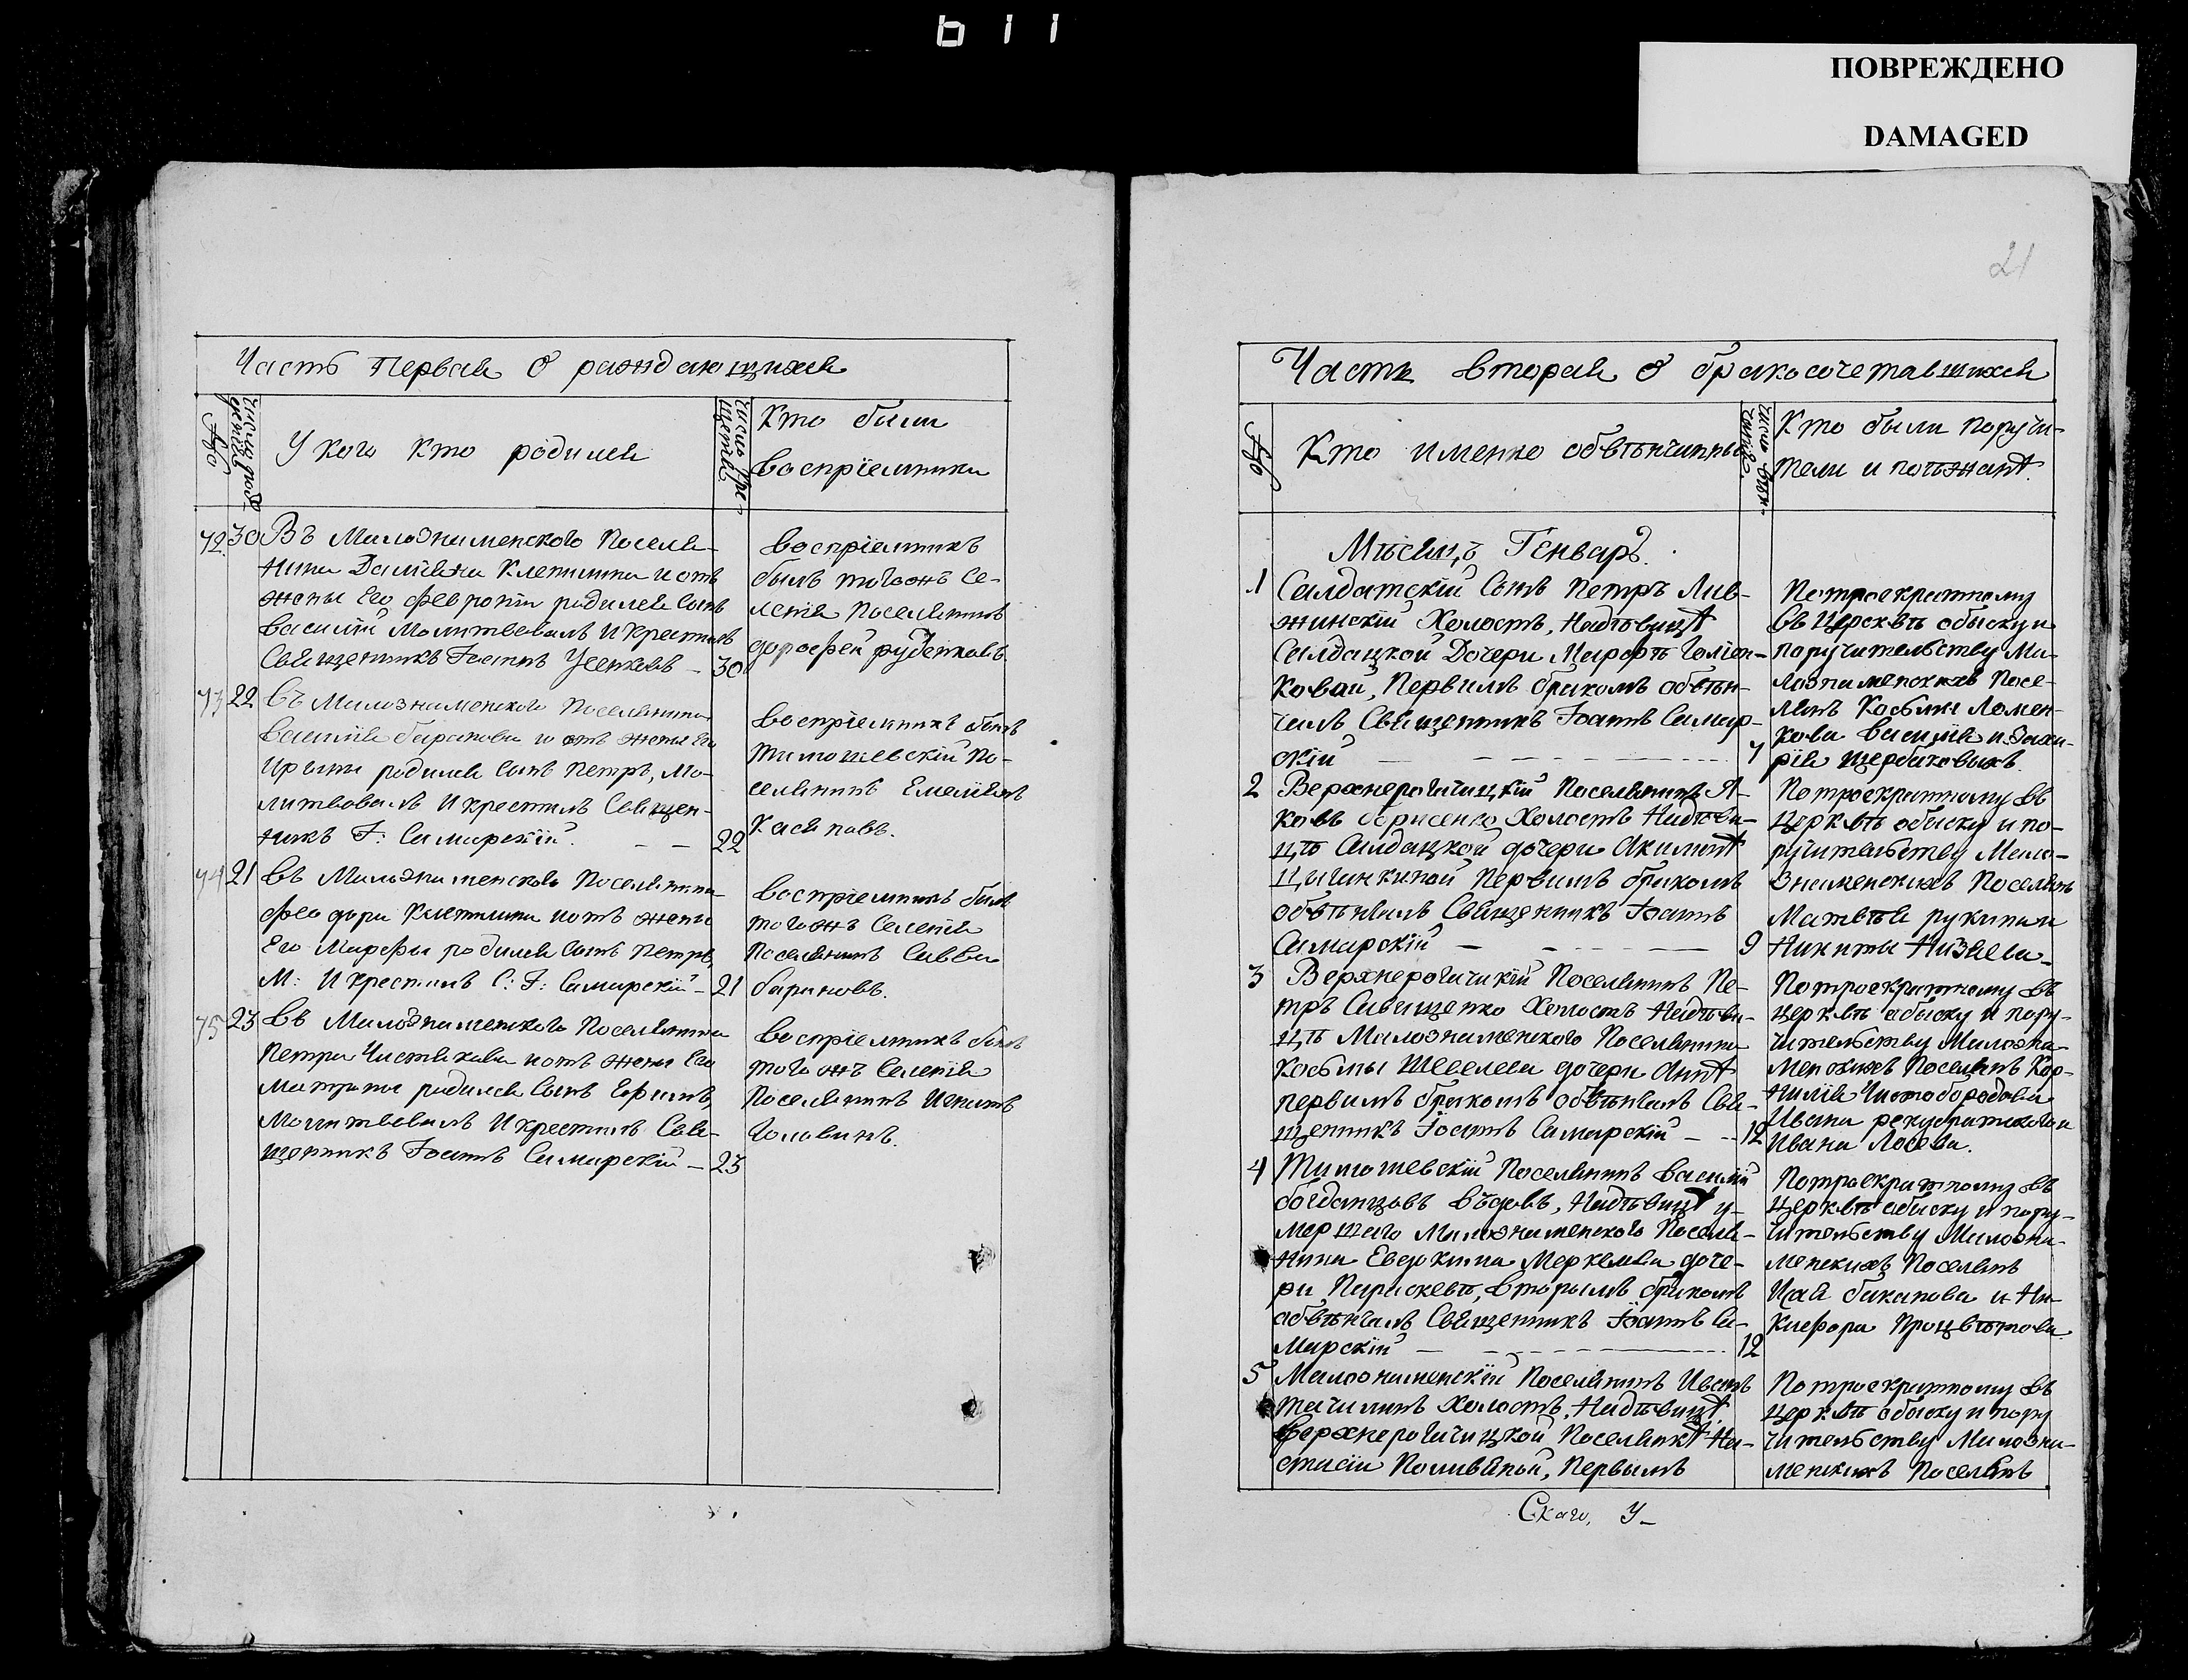 611
ПОВРЕЖДЕНО
DAMAGED
21
Часть Первая О раждающихся
№
число рожденiя
У кого кто родился
число крещенiя
Кто были
воспрiемники
72 30 Въ Малознаменского Поселя-
нина Дамiяна Клепинина и отъ
жены Его февронiи родился Сынъ
василiй Молитвовалъ И крестилъ
Священникъ Iоаннъ Усенковъ - 30
воспрiемникъ
былъ тогожъ Се-
ленiя Поселянинъ
дорофей руденковъ
73 22 въ Малознаменского Поселянина
василiя баранова и отъ жены Его
Ирыны родился сынъ петръ, Мо-
литвовалъ И крестилъ Священ-
никъ I: Самарскiй. - - 22
воспрiемникъ былъ
тимошевскiй по-
селянинъ Емелiянъ
Касяновъ.
74 21 въ Малознаменского Поселянина
феодора Клепинина и отъ жены
Его Марфы родился сынъ петръ,
М: И крестилъ С: I: Самарскiй - 21
воспрiемникъ былъ
тогожъ Селенiя
Поселянинъ Савва
бариновъ.
75 23 въ Малознаменского Поселянина
Петра Чистякова и отъ жены Его
Матроны родился Сынъ Ефимъ,
Молитвовалъ И крестилъ Свя-
щенникъ Iоаннъ Самарскiй - 23
воспрiемникъ былъ
тогожъ Селенiя
Поселянинъ Игнатъ
Головинъ.
Часть вторая О бракосочетавшихся
№
Кто именно обвѣнчанны
число вѣнчанiя
Кто были Поручи-
тели и поѣзжанѣ.
Мѣсяцъ Генварь.
1 Салдатскiй Сынъ Петръ Лив-
жинскiй Холостъ, На дѣвицѣ
Салдацкой Дочери Марфѣ Голен-
ковай, Первымъ бракомъ обвѣн-
чалъ Священникъ Iоаннъ Самар-
скiй - - - - 7
По троекратному
въ Церсквѣ обыску и
поручительству Ма-
лознаменскихъ Посе-
лянъ Косьмы Ломен-
кова василiя и Заха-
рiя щербаковыхъ.
2 Верхнерогачицкiй Поселянинъ Я-
ковъ борисенко Холостъ На дѣви-
цѣ Салдацкой дочери Акилинѣ
Цыганкиной Первымъ бракомъ
обвѣнчалъ Священникъ Iоаннъ
Самарскiй - - - 9
По троекратному въ
Церквѣ обыску и по-
ручительству Мало-
знаменскихъ Поселянъ
Матвѣя рукина и
Никиты Низяева
3 Верхнерогачицкiй Поселянинъ Пе-
тръ Савищенко Холостъ На дѣви-
цѣ Малознаменского Поселянина
Косьмы Шевелева дочери Аннѣ
первымъ бракомъ обвѣнчалъ Свя-
щенникъ Iоаннъ Самарскiй - - 12
По троекратному въ
церквѣ обыску и пору-
чительству Малозна-
менскихъ Поселянъ Кор-
нилiя Чистобородова
Ивана и
Ивана Лосева.
4 Тимошевскiй Поселянинъ василiй
богданцовъ въдовъ, На дѣвицѣ у-
мершаго Малознаменского Поселя-
нина Евдокима Меркелова доче-
ри Параскевѣ, вторымъ бракомъ
обвѣнчалъ Священникъ Iоаннъ Са-
марскiй - - - 12
По троекратному въ
церквѣ обыску и пору-
чительству Малозна-
менскихъ Поселянъ
Исая баканова и Ни-
кифора Процвѣтова
5 Малознаменскiй Поселянинъ Иванъ
тачилинъ Холостъ, На дѣвицѣ
верхнерогачицкой Поселянкѣ На-
стасiи Поливаной, Первымъ
По троекратному въ
церквѣ обыску и пору
чительству Малозна-
менскихъ Поселянъ